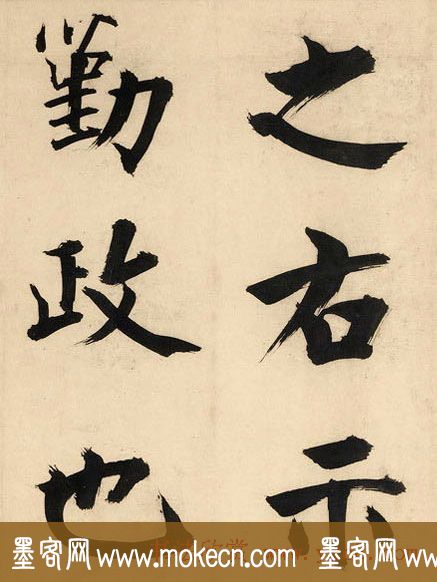 之右示
勤政也
墨客网 www.mokecn.com 墨客网 www.mokecn.com